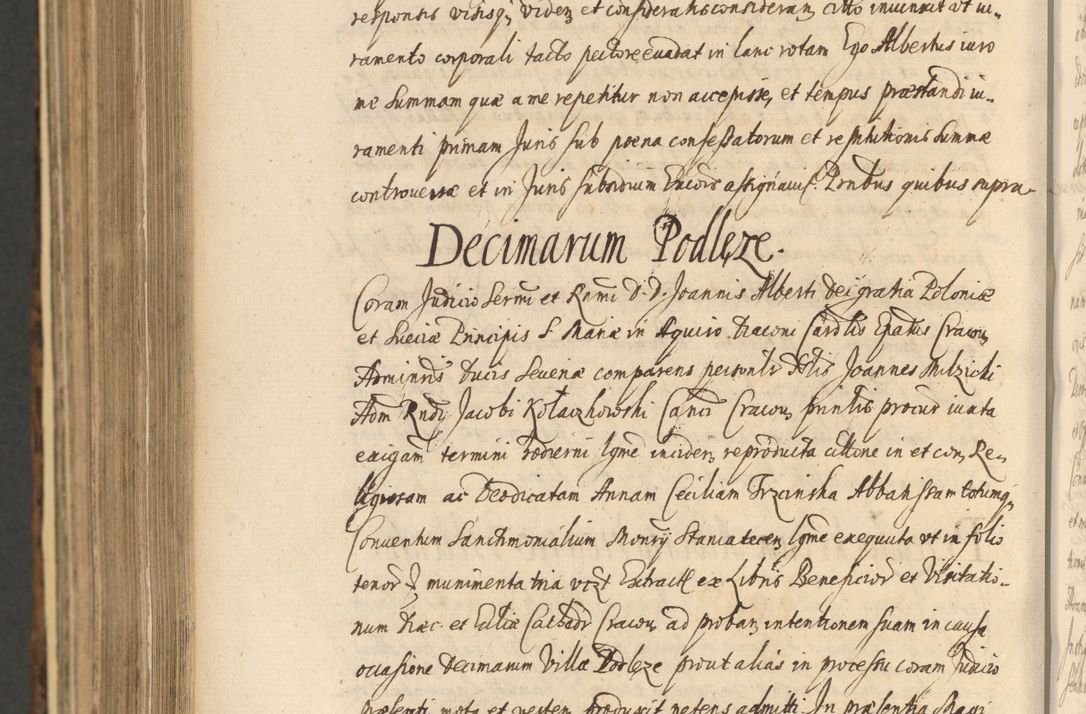 responsis visisq, viden et consideratis consideran, citto invenerit ut iu-
ramento corporali tacto pectore evadat in hanc rotam Ego Albertus iuro
me summam quæ a me repetitur non accepisse, et tempus præstandi iu-
ramenti primam Juris sub poena confessatorum et restitutionis summæ
controversæ et in Juris subsidium assignavit. Pntbus quibus supra
Decimarum Podlęże.
Coram Judicio Sermi et Rnmi D. D. Joannis Alberti Dei gratia Poloniæ
et Sueciæ Principis S. Mariæ in Aquiro Diaconi Cardlis Epatus Cracou,
Adminris Ducis Severiæ comparens personlr Joannes Milzicki
Adm Rndi Jacobi Kołaczkowski Canci Cracou, printis procur iuxta
exigam termini hodierni lgme inciden, reproducta cittone in et con, Re-
ligiosam ac Deodicatam Annam Ceciliam Trzcinska Abbatissam totumq,
Conventum Sanctimonialium Monrij Staniatecen, lgme exequuta ut in folio
tenor munimenta tria Extract ex Libris Beneficior et Visitatio-
num hæc. et Cathedr Cracou, ad proban, intentionem suam in causa
occasione Decimarum Villæ Podłeze prout alias in processu coram Judicio
præsenti moto et produxit petens admitti. In præsentia Magi